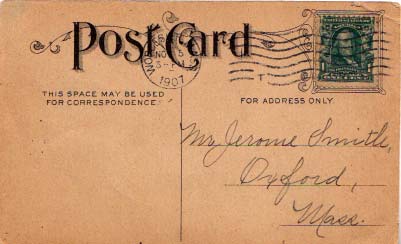 Post Card
NO
3 - P
1907
THIS SPACE MAY BE USED
FOR CORRESPONDENCE.
FOR ADDRESS ONLY.
Mr. Jerome Smith,
Oxford,
Mass.